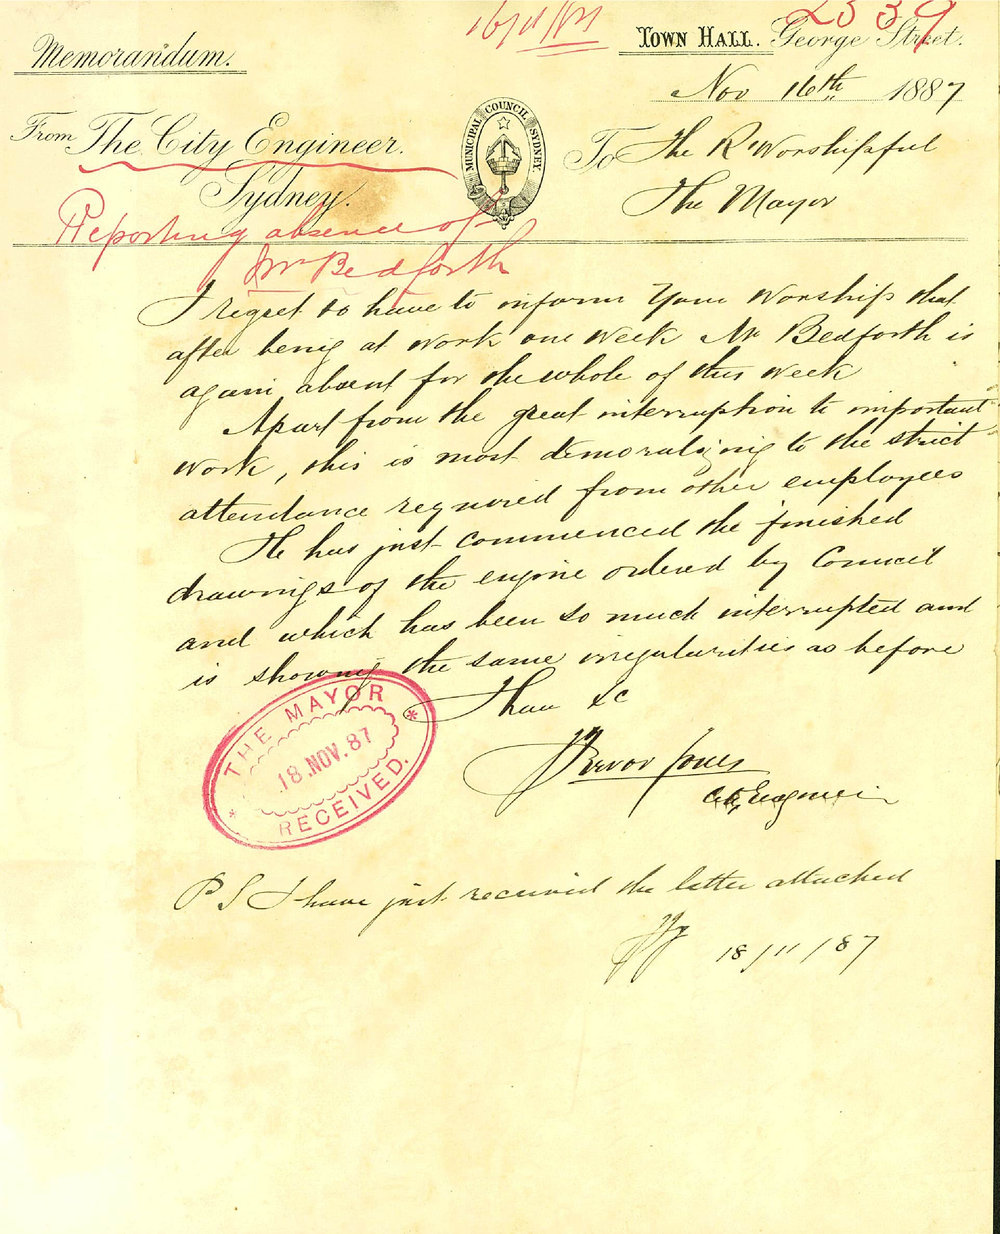 16/11/87
2339
Memorandum.
TOWN HALL. George Street.
Nov 16th 1887
From The City Engineer.
Sydney.
MUNICIPAL COUNCIL SYDNEY
To The Rt Worshipful
The Mayor
Reporting absence of
Mr Bedforth
I regret to have to inform Your Worship that
after being at work one week Mr Bedforth is
again absent for the whole of this week
Apart from the great interruption to important
work, this is most demoralizing to the strict
attendance required from other employees
He has just commenced the finished
drawings of the engine ordered by Council
and which has been so much interrupted and
is showing the same irregularities as before
I have &c
Trevor Jones
City Engineer
THE MAYOR
18 NOV. 87
RECEIVED.
P S I have just received the letter attached
18/11/87